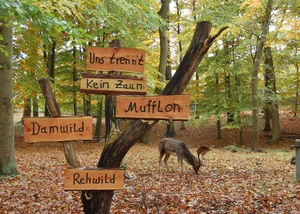 Uns trennt
kein Zaun
Mufflon
Damwild
Rehwild